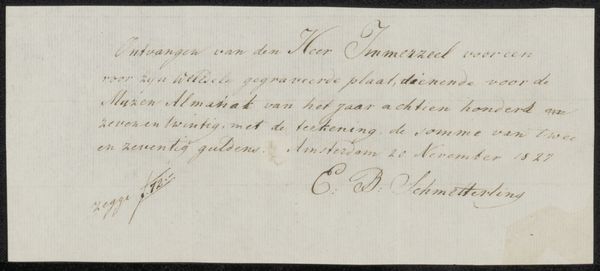 Ontvangen van den Heer Immerzeel voor een
voor zijn WelEdele gegraveerde plaat, dienende voor de
Muzen Almanak van het jaar achtien honderd en
zeven en twintig, met de teekening, de somme van twee
en zeventig guldens. Amsterdam 20 November 1827
E: B: Schmetterling
zegge f 72:-